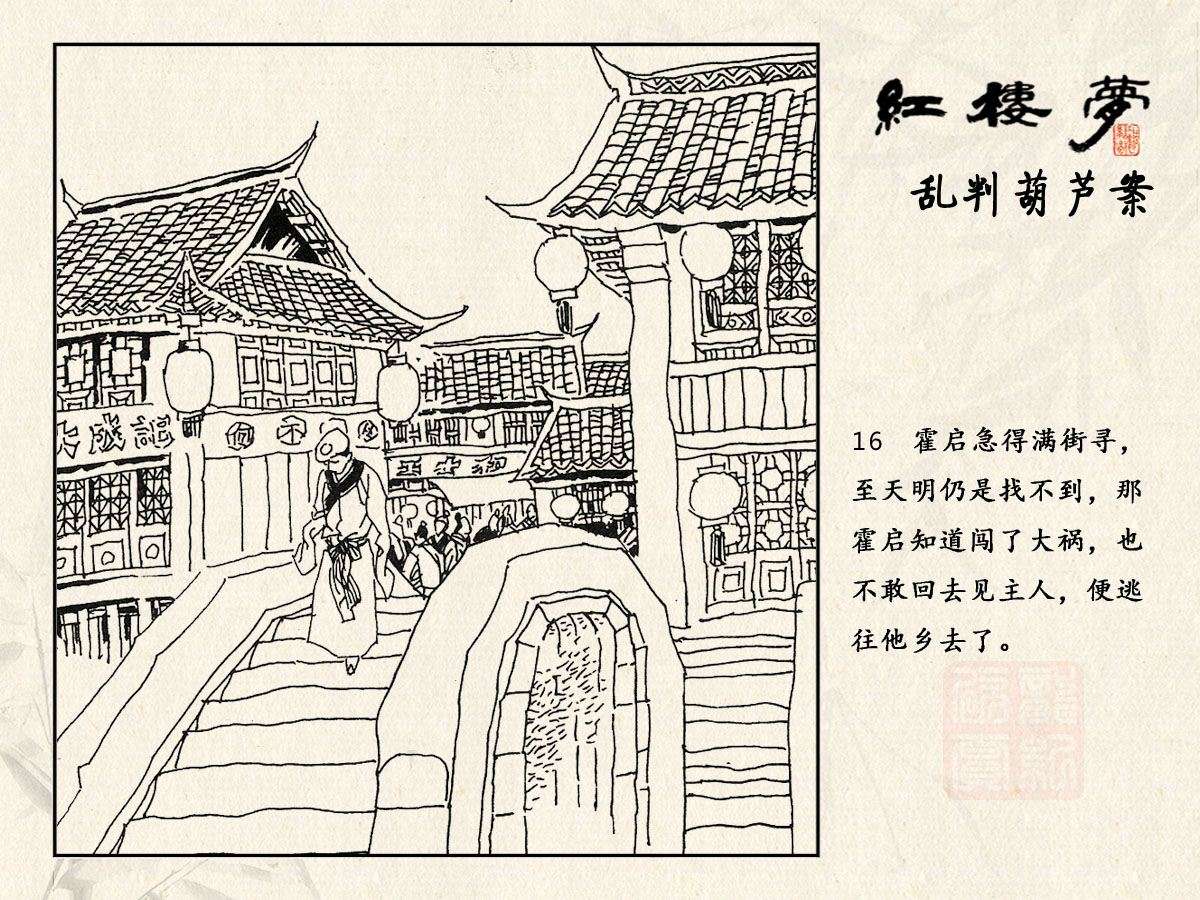 紅樓夢
乱判葫芦案
16 霍启急得满街寻，
至天明仍是找不到，那
霍启知道闯了大祸，也
不敢回去见主人，便逃
往他乡去了。